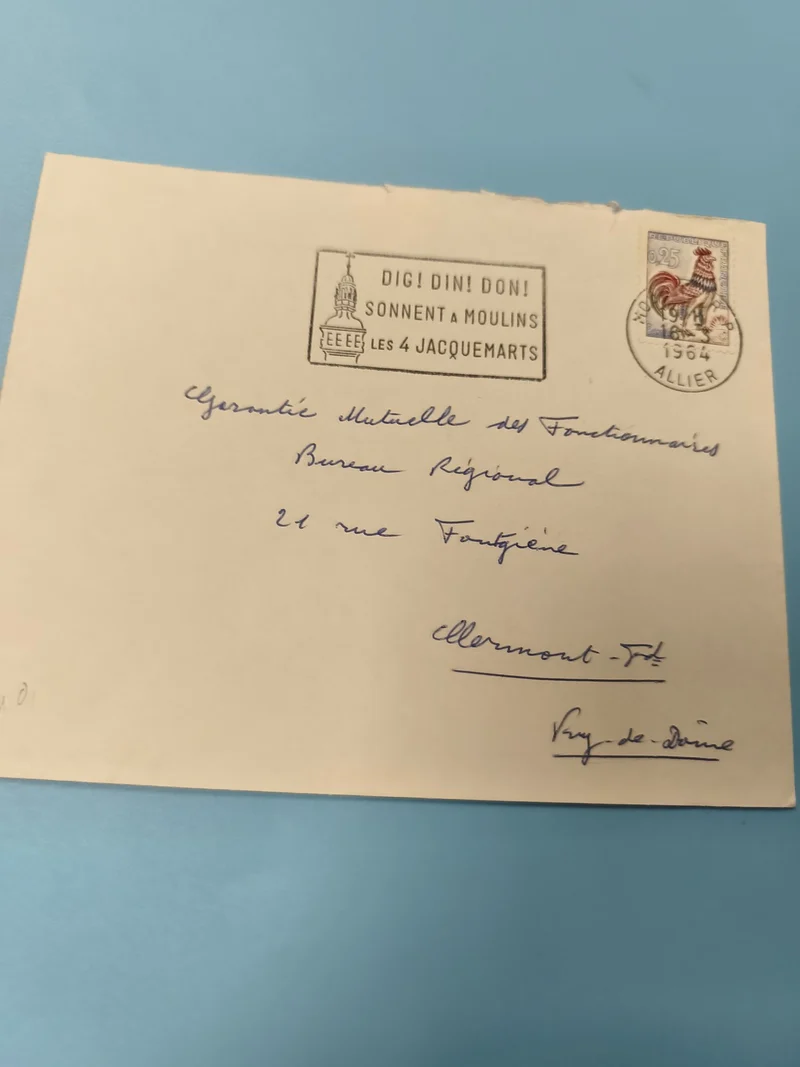 DIG! DIN! DON!
SONNENT A MOULINS
LES 4 JACQUEMARTS
0,25
19H
16-3
1964
ALLIER
Garantie Mutuelle des Fonctionnaires
Bureau Régional
21 rue Fontgiève
Clermont-Fd
Puy-de-Dôme